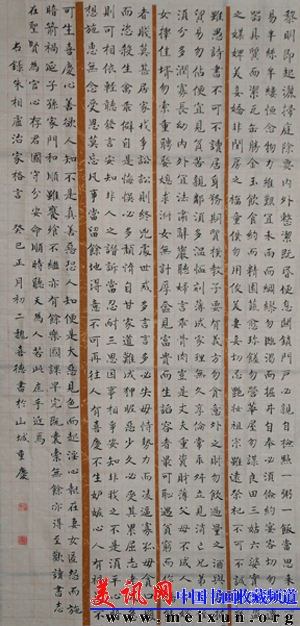 黎明即起灑掃庭除要內外整潔既昏便息關鎖門戶必親自檢點一粥一飯當思來處不
易半絲半縷恒念物力維艱宜未雨而綢繆勿臨渴而掘井自奉必須儉約宴客切勿留連
器具質而潔瓦缶勝金玉飲食約而精園蔬愈珍饈勿營華屋勿謀良田三姑六婆實淫盜
之媒婢美妾嬌非閨房之福童僕勿用俊美妻妾切忌艷妝祖宗雖遠祭祀不可不誠子孫
雖愚詩書不可不讀居身務期質樸教子要有義方勿貪意外之財勿飲過量之酒與肩挑
貿易勿佔便宜見貧苦親鄰須多溫恤刻薄成家理無久享倫常乖舛立見消亡兄弟叔姪須
分多潤寡長幼內外宜法肅辭嚴聽婦言乖骨肉豈是丈夫重資財薄父母不成人子嫁
女擇佳婿勿索重聘娶媳求淑女勿計厚奩見富貴而生諂容者最可恥遇貧窮而作驕態
者賤莫甚居家戒爭訟訟則終凶處世戒多言言多必失毋恃勢力而凌逼孤寡毋貪口腹
而恣殺生禽乖僻自是悔誤必多頹惰自甘家道難成狎昵惡少久必受其累屈志老成急
則可相依輕聽發言安知非人之譖訴當忍耐三思因事相爭安知非我之不是須平心暗
想施惠無念受恩莫忘凡事當留餘地得意不可再往人有喜慶不可生妒嫉心人有禍患不
可生喜慶心善欲人知不是真善惡恐人知便是大惡見色而起淫心報在妻女匿怨而施
暗箭禍延子孫家門和順雖饔飧不繼亦有餘歡國課早完既囊橐無餘亦得至歡讀書志
在聖賢為官心存君國守分安命順時聽天為人若此庶乎近焉
右錄朱柏廬治家格言 癸巳正月初二魏喜德書於山城重慶
美讯网 中国书画收藏频道
www.mei-xun.com